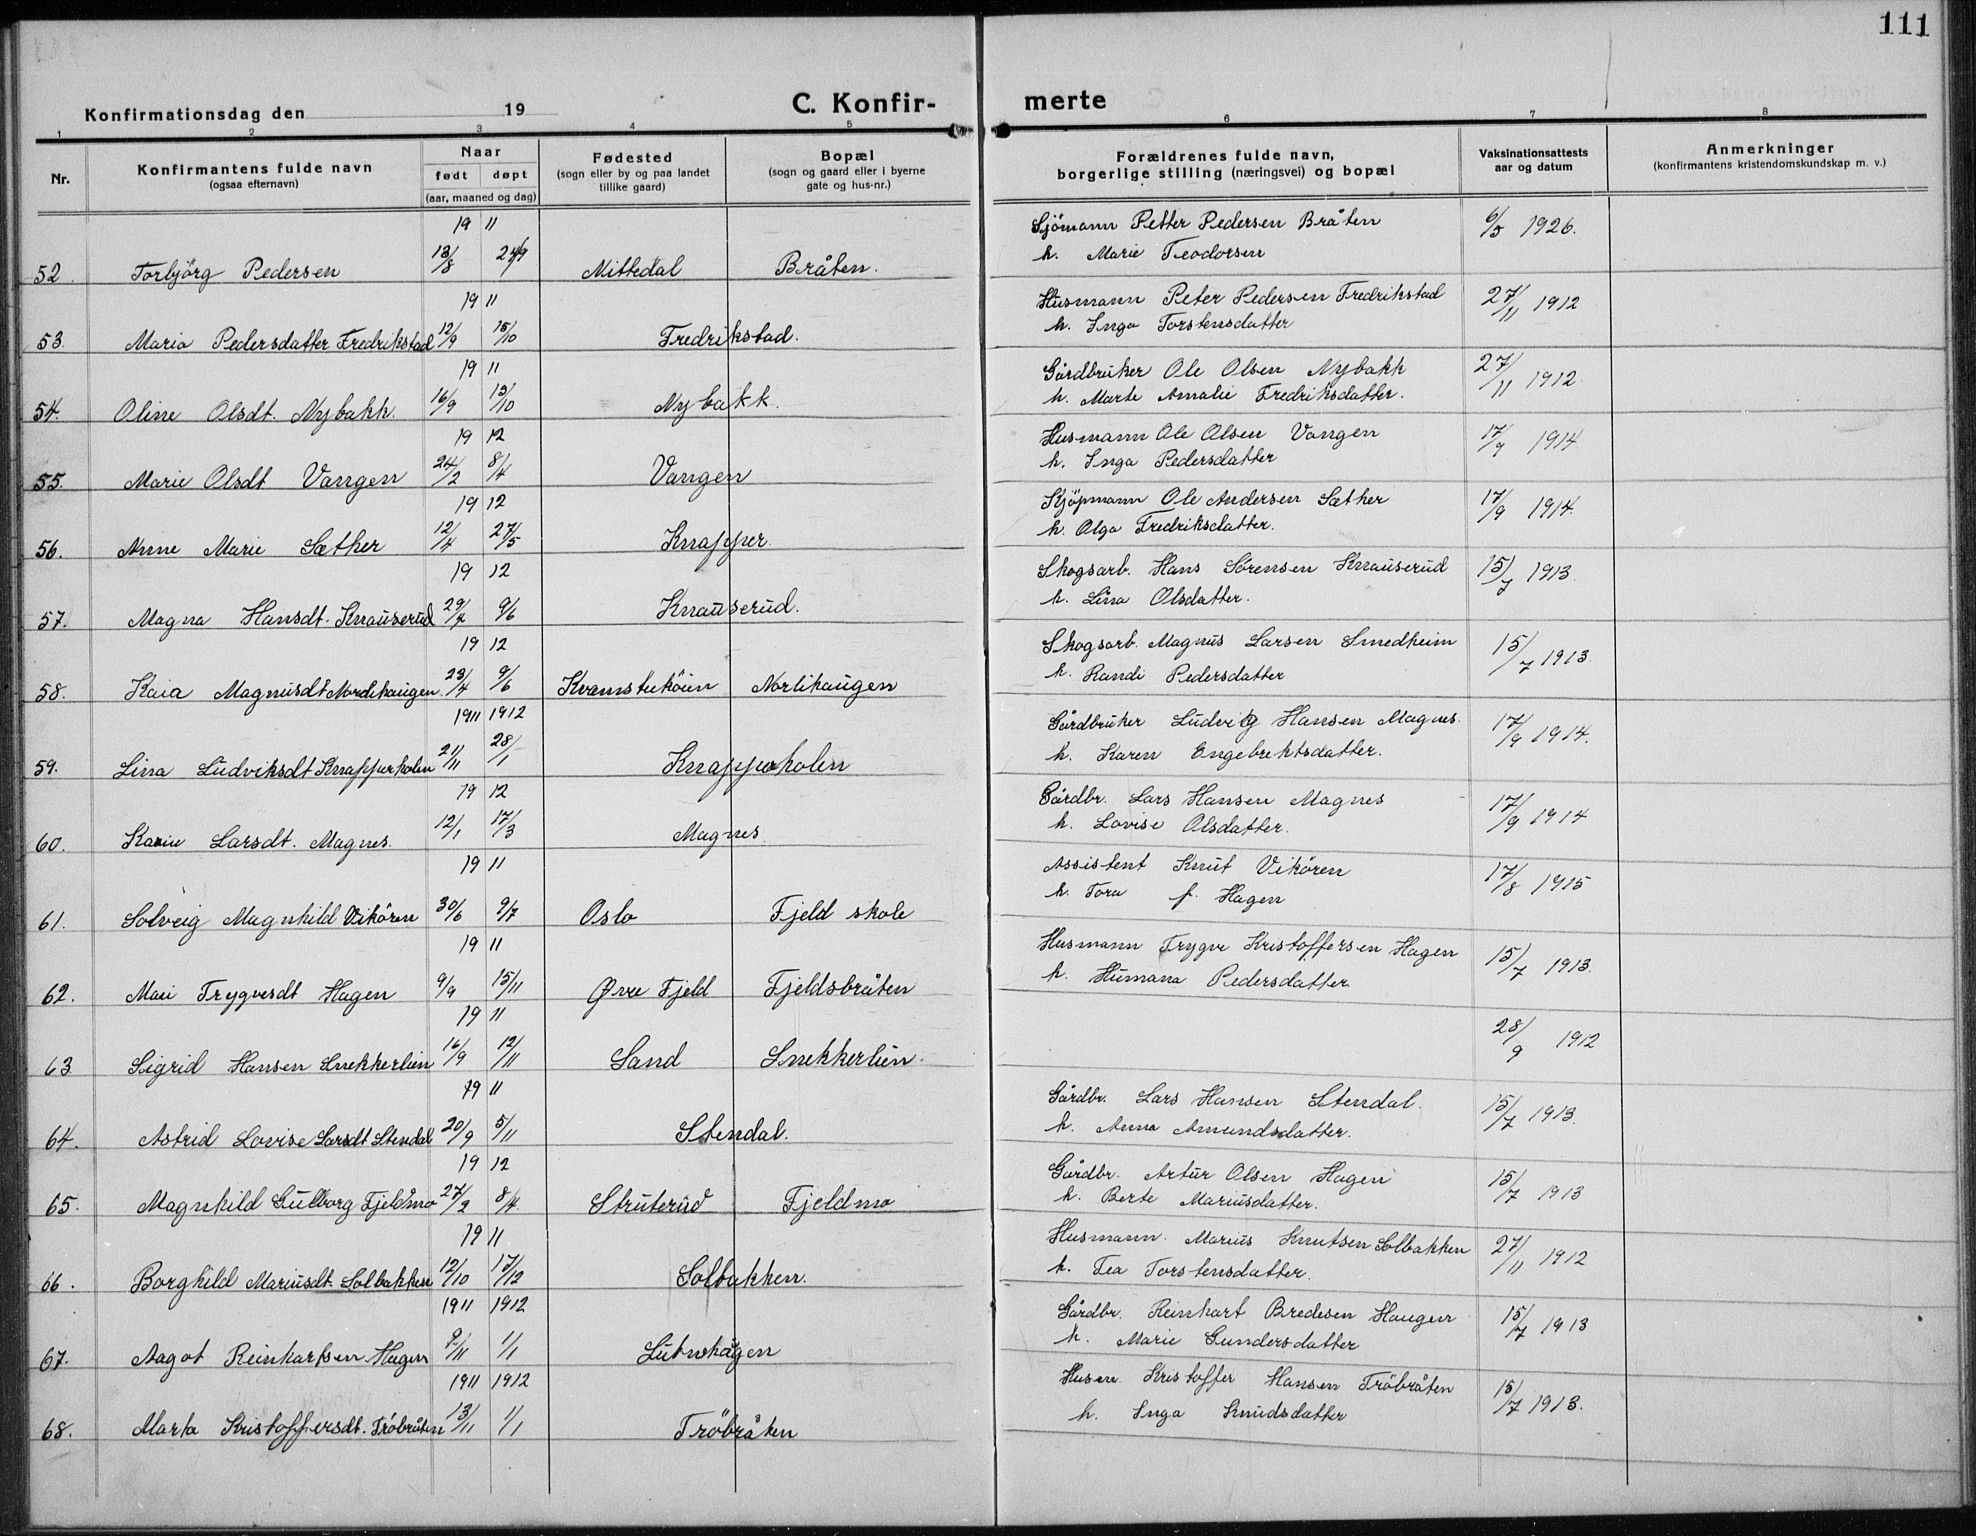 111
Konfirmationsdag den 19
C. Konfir-
merte
1 2 3 4 5 6 7 8
Nr.
Konfirmantens fulde navn
(ogsaa efternavn)
Naar
født døpt
(aar, maaned og dag)
Fødested
(sogn eller by og paa landet
tillike gaard)
Bopæl
(sogn og gaard eller i byerne
gate og hus-nr.)
Forældrenes fulde navn,
borgerlige stilling (næringsvei) og bopæl
Vaksinationsattests
aar og datum
Anmerkninger
(konfirmantens kristendomskundskap m. v.)
19 11
Sjömann Petter Pedersen Bråten 6/5 1926.
52. Torbjörg Pedersen 13/8 24/9 Nittedal Bråten.
h. Marie Teodorsen
19 11
Husmann Peter Pedersen Fredrikstad 27/11 1912
53 Maria Pedersdatter Fredrikstad 12/9 15/10 Fredrikstad.
h. Inga Torstensdatter
19 11
Gårdbruker Ole Olsen Nybakk 27/11 1912
54. Oline Olsdt. Nybakk. 16/9 15/10 Nybakk.
h. Marte Amalie Fredriksdatter.
19 12
Husmann Ole Olsen Vangen 17/9 1914
55. Marie Olsdt Vangen 24/2 8/4 Vangen
h. Inga Pedersdatter
19 12
Kjöpmann Ole Andersen Sæther 17/9 1914.
56. Anne Marie Sæther 12/4 27/5 Knapper.
h. Olga Fredriksdatter.
19 12
Skogsarb. Hans Sörensen Knauserud 15/7 1913.
57. Magna Hansdt. Knauserud 29/4 9/6 Knauserud.
h. Lina Olsdatter.
19 12
Skogsarb. Magnus Larsen Smedheim 15/7 1913
58. Kaia Magnusdt Nordihaugen 23/4 9/6 Kvamstuköien Norlihaugen
h. Randi Pedersdatter
1911 1912
Gårdbruker Ludvig Hansen Magnes. 17/9 1914.
59. Lina Ludviksdt Knapperholen 21/11 28/1 Knapperholen
h. Karen Engebrektsdatter.
19 12
Gårdbr. Lars Hansen Magnes 17/9 1914
60. Karin Larsdt. Magnes. 12/1 17/3 Magnes
h. Lovise Olsdatter.
19 11
Assistent Knut Vikören 17/8 1915
61. Solveig Magnhild Vikören 30/6 9/7 Oslo Fjeld skole
h. Tora f. Hagen
19 11
Husmann Trygve Kristoffersen Hagen 15/7 1913.
62. Mari Trygvesdt Hagen 9/9 15/11 Øvre Fjeld Fjeldsbråten
h. Humana Pedersdatter
19 11
28/9 1912
63 Sigrid Hansen Snekkerlien 16/9 12/11 Sand Snekkerlien.
19 11
Gårdbr. Lars Hansen Stendal. 15/7 1913.
64. Astrid Lovise Larsdt Stendal 20/9 5/11 Stendal.
h. Anna Amundsdatter.
19 12
Gårdbr. Artur Olsen Hagen 15/7 1913
65. Magnhild Gulborg Fjeldmo 27/2 8/4 Struterud Fjeldmo
h. Berte Mariusdatter.
19 11
Husmann. Marius Knutsen Solbakken 27/11 1912
66. Borghild Mariusdt. Solbakken 12/10 17/12 Solbakken.
h. Tea Torstensdatter.
1911 1912
Gårdbr. Reinhart Bredesen Haugen 15/7 1913
67. Aagot Reinhartsen Hagen 9/11 1/1
h. Marie Gundersdatter
1911 1912
Husm. Kristoffer Hansen Tröbråten 15/7 1913.
68. Marta Kristoffersdt. Tröbråten 13/11 1/1 Tröbråten
h. Inga Knudsdatter